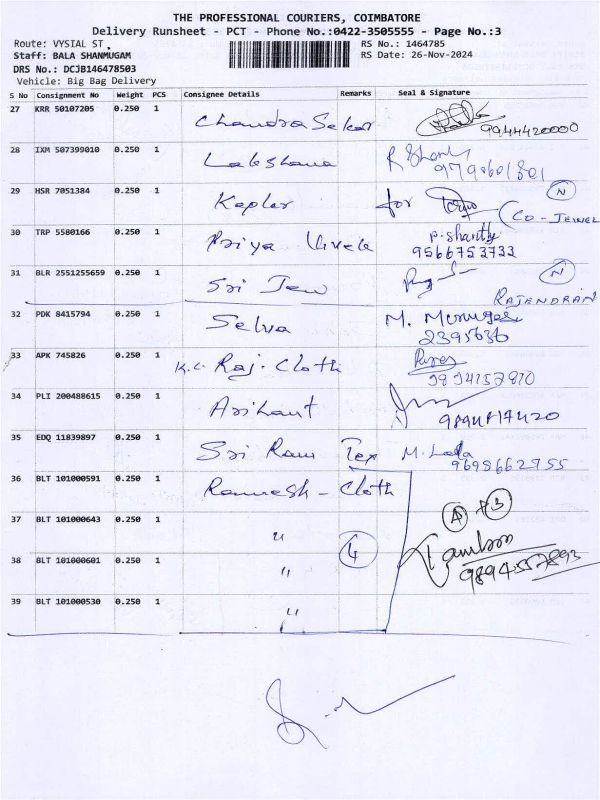 THE PROFESSIONAL COURIERS, COIMBATORE
Delivery Runsheet - PCT - Phone No.:0422-3505555 - Page No.:3
Route: VYSIAL ST. RS No.: 1464785
Staff: BALA SHANMUGAM RS Date: 26-Nov-2024
DRS No.: DCJB146478503
Vehicle: Big Bag Delivery
S No Consignment No Weight PCS Consignee Details Remarks Seal & Signature
27 KRR 50107205 0.250 1 Chandra Sekar 9944420000
28 IXM 507399010 0.250 1 Lakshana
29 HSR 7051384 0.250 1 Kapler for N
CO-JEWEL
30 TRP 5580166 0.250 1 Priya Vivek P. Shanthy
9566753733
31 BLR 2551255659 0.250 1 Sri Jew N
RAJENDRAN
32 PDK 8415794 0.250 1 Selva M. Murugas
2395636
33 APK 745826 0.250 1 K.C. Raj. Cloth
34 PLI 200488615 0.250 1 Arihant
9894817420
35 EDQ 11839897 0.250 1 Sri Ram Tex M. Lada
9698662755
36 BLT 101000591 0.250 1 Ramesh - Cloth
37 BLT 101000643 0.250 1 "
38 BLT 101000601 0.250 1 " 4
9894557893
39 BLT 101000530 0.250 1 "